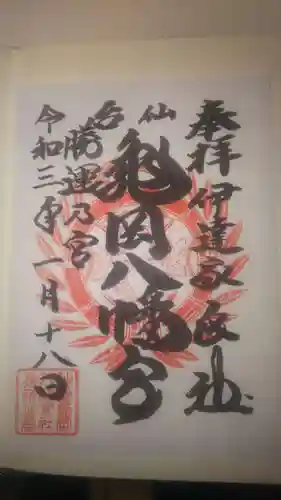 奉拝 伊達家氏社
仙台
亀岡八幡宮
勝運乃宮
令和三年一月十八日